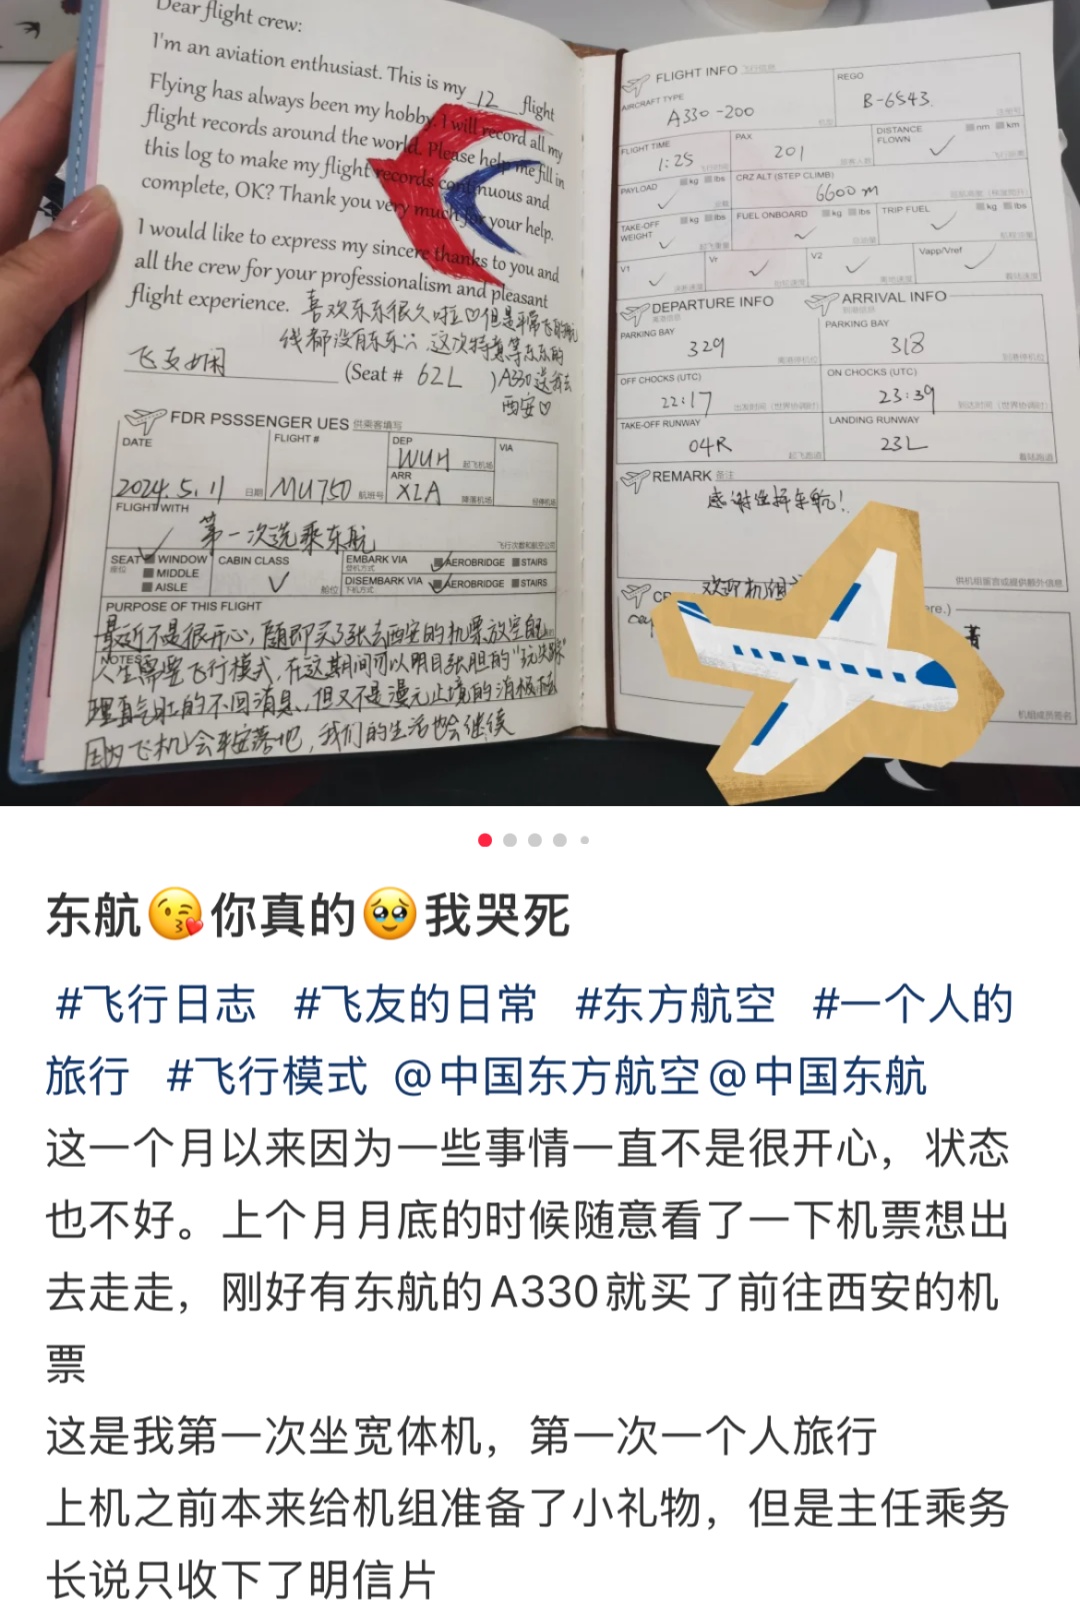 Dear flight crew:
I'm an aviation enthusiast. This is my 12 flight
Flying has always been my hobby. I will record all my
flight records around the world. Please help me fill in
this log to make my flight records continuous and
complete, OK? Thank you very much for your help.
I would like to express my sincere thanks to you and
all the crew for your professionalism and pleasant
flight experience. 喜欢东东很久啦♡但是平常飞的航
线都没有东东 这次特意等东东的
飞友 (Seat # 62L ) A330送我去
西安♡
FDR PSSSENGER UES 供乘客填写
DATE FLIGHT # DEP VIA
WUH 起飞机场
ARR
2024.5.11 日期 MU750 航班号 XIA 降落机场 经停机场
FLIGHT WITH
第一次选乘东航
飞行次数和航空公司
SEAT WINDOW CABIN CLASS EMBARK VIA AEROBRIDGE STAIRS
座位 登机方式
MIDDLE DISEMBARK VIA AEROBRIDGE STAIRS
AISLE 舱位 下机方式
PURPOSE OF THIS FLIGHT
最近不是很开心，随即买了张去西安的机票放空自己
NOTES
人生需要飞行模式，在这期间可以明目张胆的"玩失踪"
理直气壮的不回消息，但又不是漫无止境的消极
因为飞机会平安落地，我们的生活也会继续
FLIGHT INFO 飞行信息
AIRCRAFT TYPE REGO
A330-200 机型 B-6543
FLIGHT TIME PAX DISTANCE FLOWN nm km
1:25 飞行时间 201
PAYLOAD kg lbs CRZ ALT (STEP CLIMB)
6600m
TAKE-OFF WEIGHT kg lbs FUEL ONBOARD kg lbs TRIP FUEL kg lbs
V1 Vr V2 Vapp/Vref
DEPARTURE INFO ARRIVAL INFO
离港信息 到港信息
PARKING BAY PARKING BAY
329 离港停机位 318 到港停机位
OFF CHOCKS (UTC) ON CHOCKS (UTC)
22:17 出发时间（世界协调时） 23:39 到达时间（世界协调时）
TAKE-OFF RUNWAY LANDING RUNWAY
04R 起飞跑道 23L 着陆跑道
REMARK 备注
感谢选择东航！
供机组留言或提供额外信息
欢迎机组
机组成员签名
东航😘你真的🥹我哭死
#飞行日志 #飞友的日常 #东方航空 #一个人的
旅行 #飞行模式 @中国东方航空@中国东航
这一个月以来因为一些事情一直不是很开心，状态
也不好。上个月月底的时候随意看了一下机票想出
去走走，刚好有东航的A330就买了前往西安的机
票
这是我第一次坐宽体机，第一次一个人旅行
上机之前本来给机组准备了小礼物，但是主任乘务
长说只收下了明信片